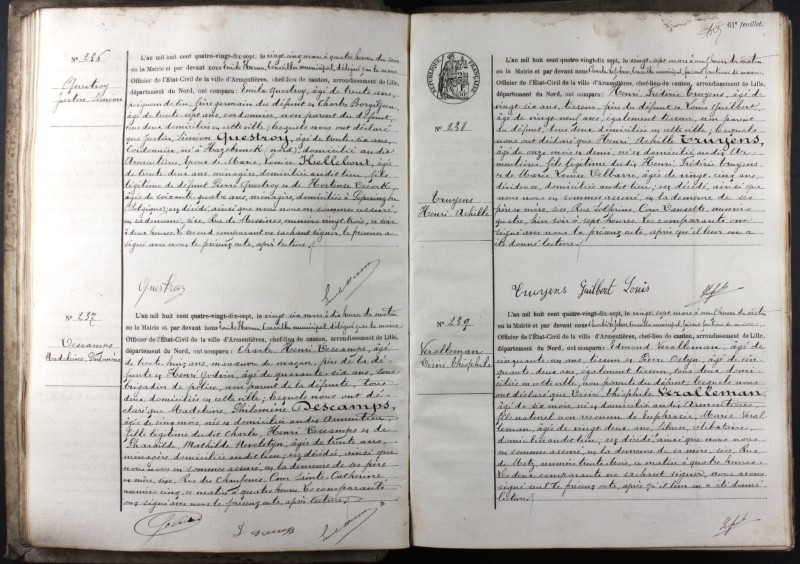 N° 236
Questroy
Justin Siméon
L'an mil huit cent quatre-vingt-dix-sept, le vingt cinq mars à quatre heures du soir
en la Mairie et par devant nous Emile Human, Conseiller municipal, délégué par le maire
Officier de l'État-Civil de la ville d'Armentières, chef-lieu de canton, arrondissement de Lille,
département du Nord, ont comparu: Emile Questroy, âgé de trente ans,
peigneur de lin, frère germain du défunt et Charles
âgé de trente sept ans, cordonnier, non parent du défunt,
tous deux domiciliés en cette ville; lesquels nous ont déclaré
que Justin Siméon Questroy, âgé de trente six ans,
né à Hazebrouck (nord), domicilié audit
Armentières, époux de Marie Louise Hellebout, âgée
de trente deux ans, ménagère, domiciliée audit lieu, fils
légitime de défunt Henri Questroy et de Hortense
âgée de soixante quatre ans, ménagère, domiciliée à Poperinghe
(Belgique); est décédé, ainsi que nous nous en sommes assuré,
en sa demeure, sise, Rue de Messines, numéro vingt trois, ce soir
à deux heures. Le second comparant ne sachant signer, le premier a
signé avec nous le présent acte, après lecture.
Questroy
N° 237
Descamps
Madeleine Philomène
L'an mil huit cent quatre-vingt-dix-sept, le vingt six mars à dix heures du matin
en la Mairie et par devant nous Emile Human, Conseiller municipal, délégué par le maire
Officier de l'État-Civil de la ville d'Armentières, chef-lieu de canton, arrondissement de Lille,
département du Nord, ont comparu: Charles Henri Descamps, âgé
de trente huit ans, manœuvre de maçon, père de la dé-
funte et Henri Godin, âgé de quarante six ans, sous
brigadier de police, non parent de la défunte, tous
deux domiciliés en cette ville; lesquels nous ont dé-
claré que Madeleine Philomène Descamps,
âgée de cinq mois, née et domiciliée audit Armentières
fille légitime dudit Charles Henri Descamps et de
Mathilde âgée de trente ans,
ménagère, domiciliée audit lieu; est décédée, ainsi que
nous nous en sommes assuré, en la demeure de ses père
et mère, sise, Rue des Chauffours, Cour Sainte Catherine
numéro cinq, ce matin à quatre heures. Les comparants
ont signé avec nous le présent acte, après lecture.
Descamps
61e feuillet.
RÉPUBLIQUE FRANÇAISE
N° 238
Cruyens
Henri Achille
L'an mil huit cent quatre-vingt-dix-sept, le vingt sept mars à neuf heures du matin
en la Mairie et par devant nous Conseiller municipal faisant fonctions de maire,
Officier de l'État-Civil de la ville d'Armentières, chef-lieu de canton, arrondissement de Lille,
département du Nord, ont comparu: Henri Frédéric Cruyens, âgé de
vingt six ans, tisseur, père du défunt et Louis Guilbert,
âgé de vingt neuf ans, également tisseur, non parent
du défunt, tous deux domiciliés en cette ville; lesquels
nous ont déclaré que Henri Achille Cruyens,
âgé de onze mois et demi, né et domicilié audit Ar-
mentières, fils légitime dudit Henri Frédéric Cruyens
et de Marie Louise Delbarre, âgée de vingt-cinq ans,
dévideuse, domiciliée audit lieu; est décédé, ainsi que
nous nous en sommes assuré, en la demeure de ses
père et mère, sise, Rue Solférino, Cour Dansette, numéro
quatre, hier soir à sept heures. Les comparants ont
signé avec nous le présent acte, après qu'il leur en a
été donné lecture.
Cruyens Guilbert Louis
N° 239
Veralleman
Désiré Théophile
L'an mil huit cent quatre-vingt-dix-sept, le vingt sept mars à neuf heures du matin
en la Mairie et par devant nous Conseiller municipal faisant fonctions de maire,
Officier de l'État-Civil de la ville d'Armentières, chef-lieu de canton, arrondissement de Lille,
département du Nord, ont comparu: Edouard Veralleman, âgé de
cinquante un ans, tisseur et Pierre Ostyn, âgé de cin-
quante deux ans, également tisseur, tous deux domi-
ciliés en cette ville, non parents du défunt; lesquels nous
ont déclaré que Désiré Théophile Veralleman,
âgé de six mois, né et domicilié audit Armentières,
fils naturel non reconnu de Euphrasie Marie Veral
leman, âgée de vingt deux ans, fileuse, célibataire,
domiciliée audit lieu; est décédé ainsi que nous nous
en sommes assuré, en la demeure de sa mère, sise, Rue
de Metz, numéro trente trois, ce matin à quatre heures.
Les deux comparants ne sachant signer, nous avons
signé seul le présent acte, après qu'il leur en a été donné
lecture.